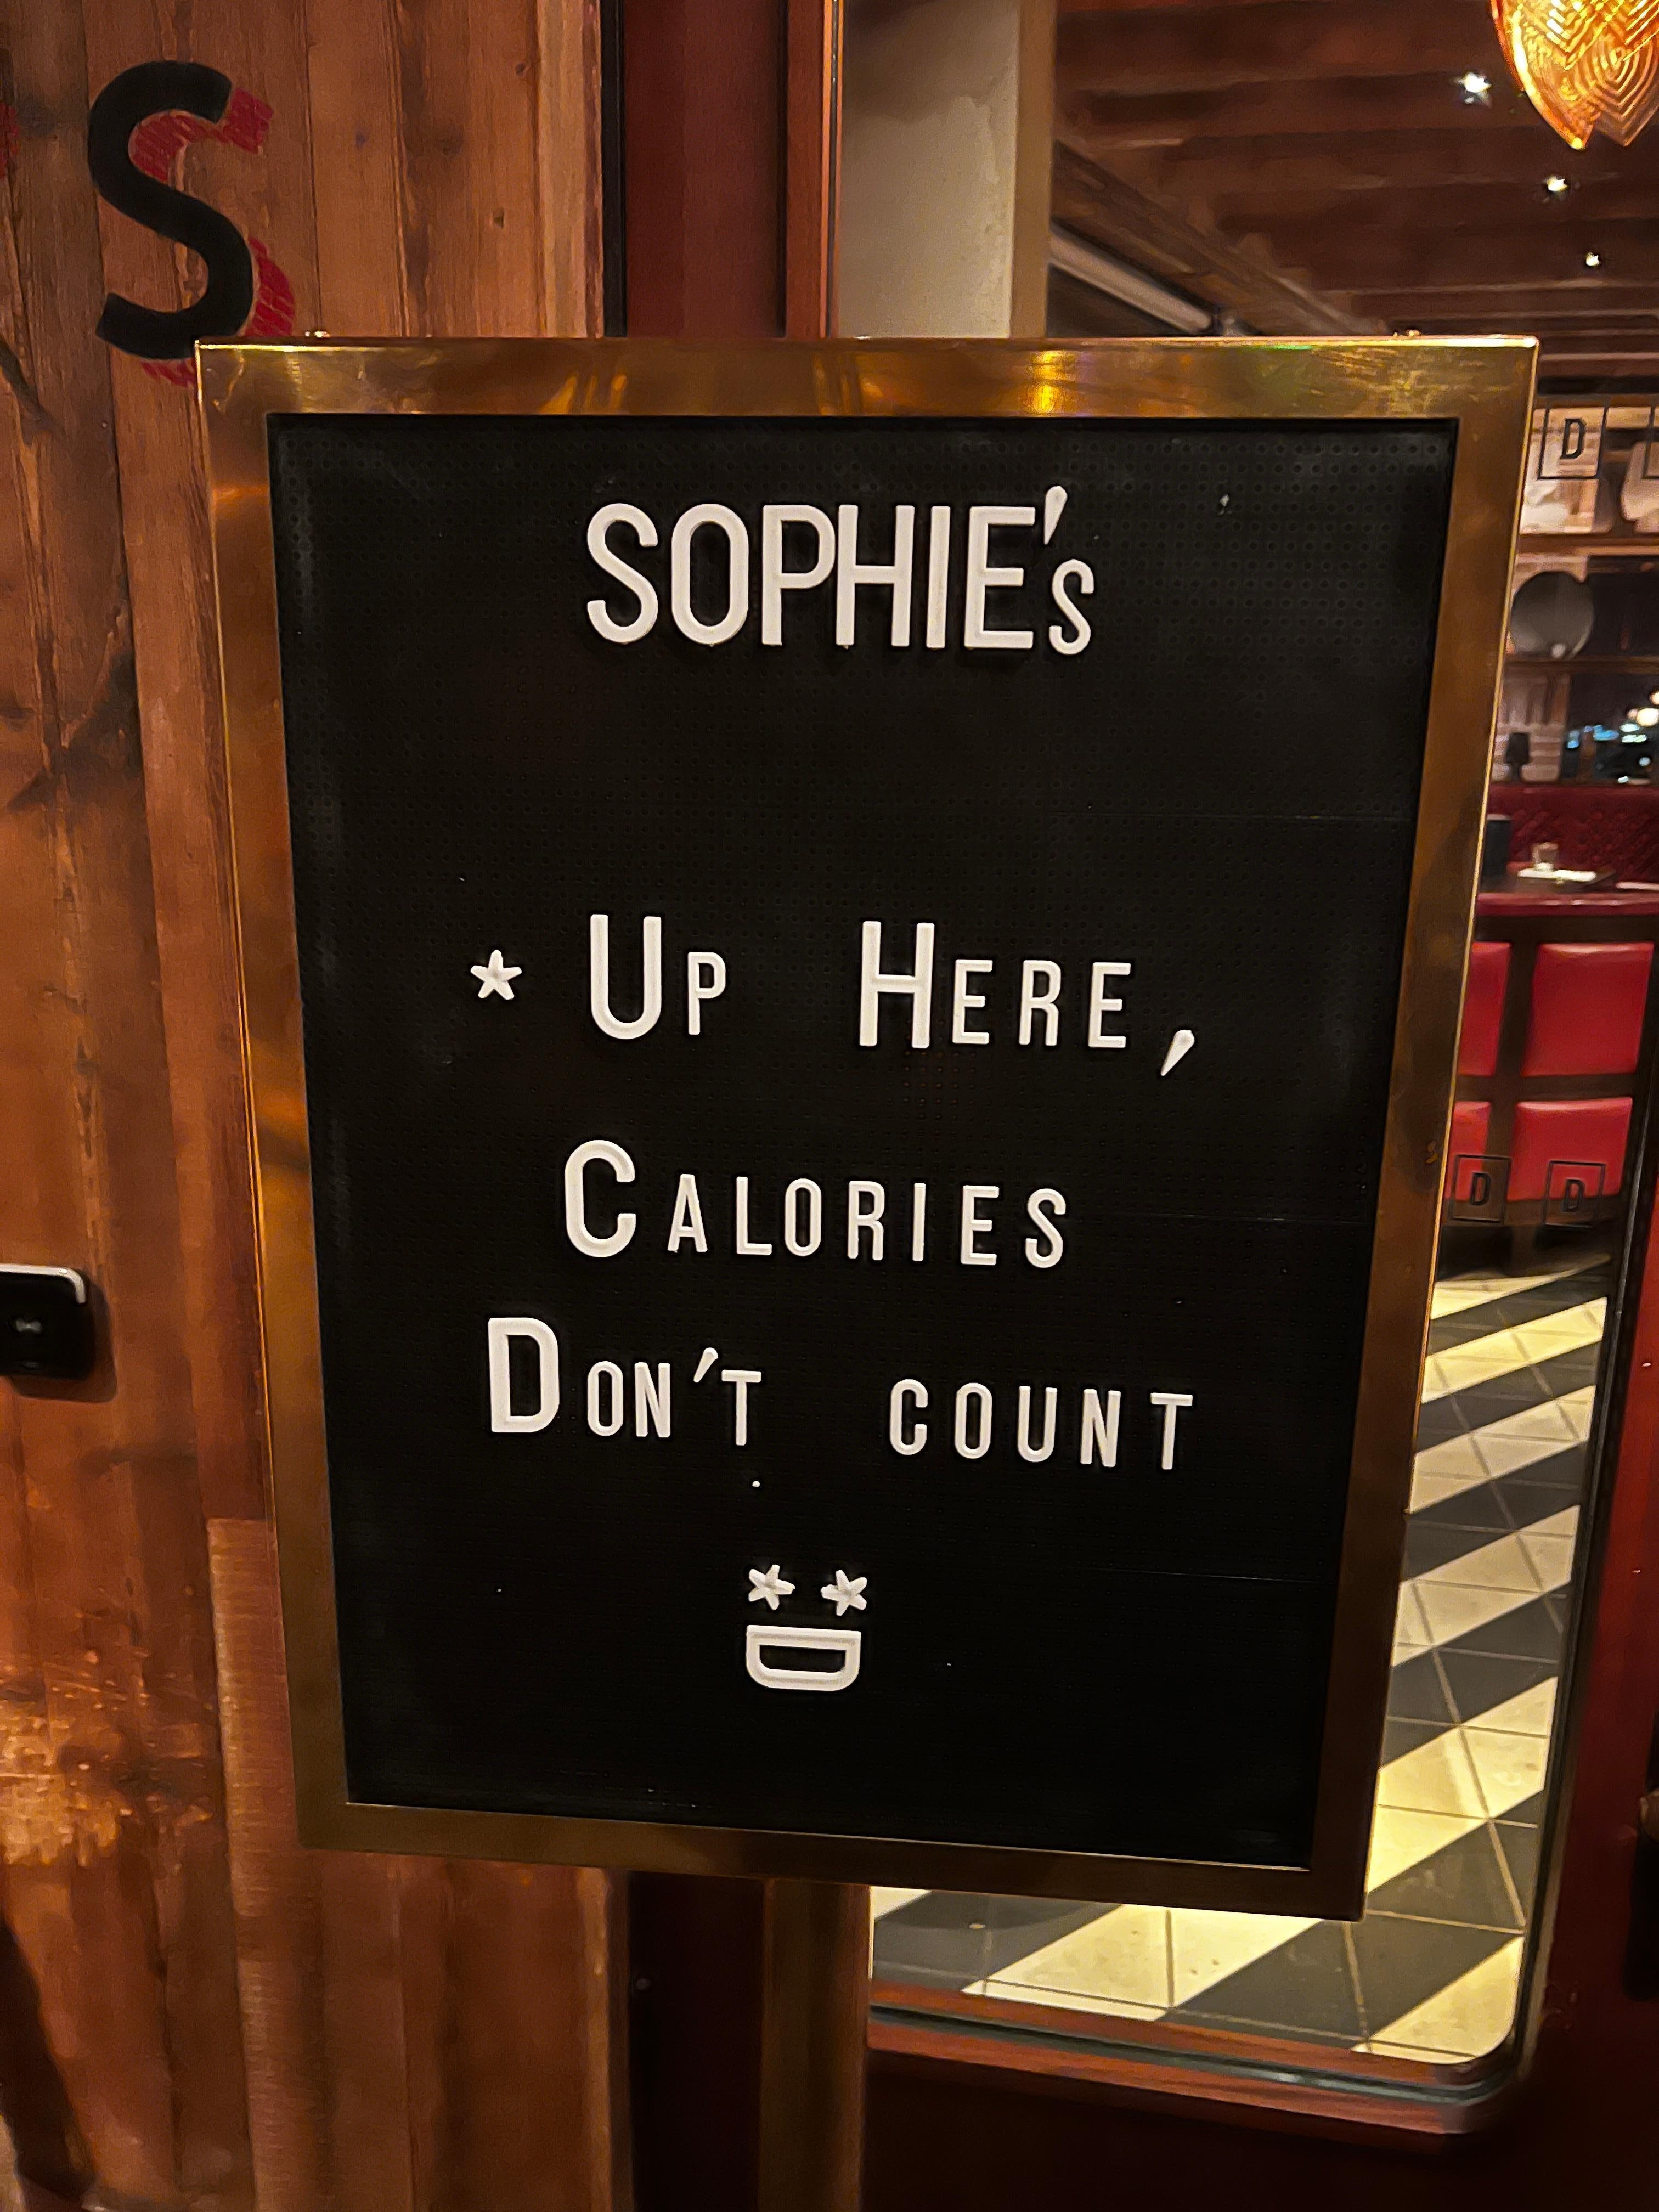 S
SOPHIE's
* UP HERE,
CALORIES
DON'T COUNT
* *
D
D
D D